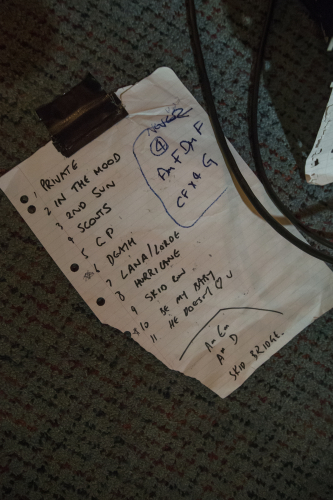 1 PRIVATE
2 IN THE MOOD
3 2ND SUN
4 SCOTS
5 CP
6 DEATH
7 LANA/LORDE
8 HURRICANE
9 SKID ROW
10 BE MY BABY
11 HE DOESN'T ♡ U
④
Am F Dm F
CF x 4 G
Am G
Am D
SKID BRIDGE.